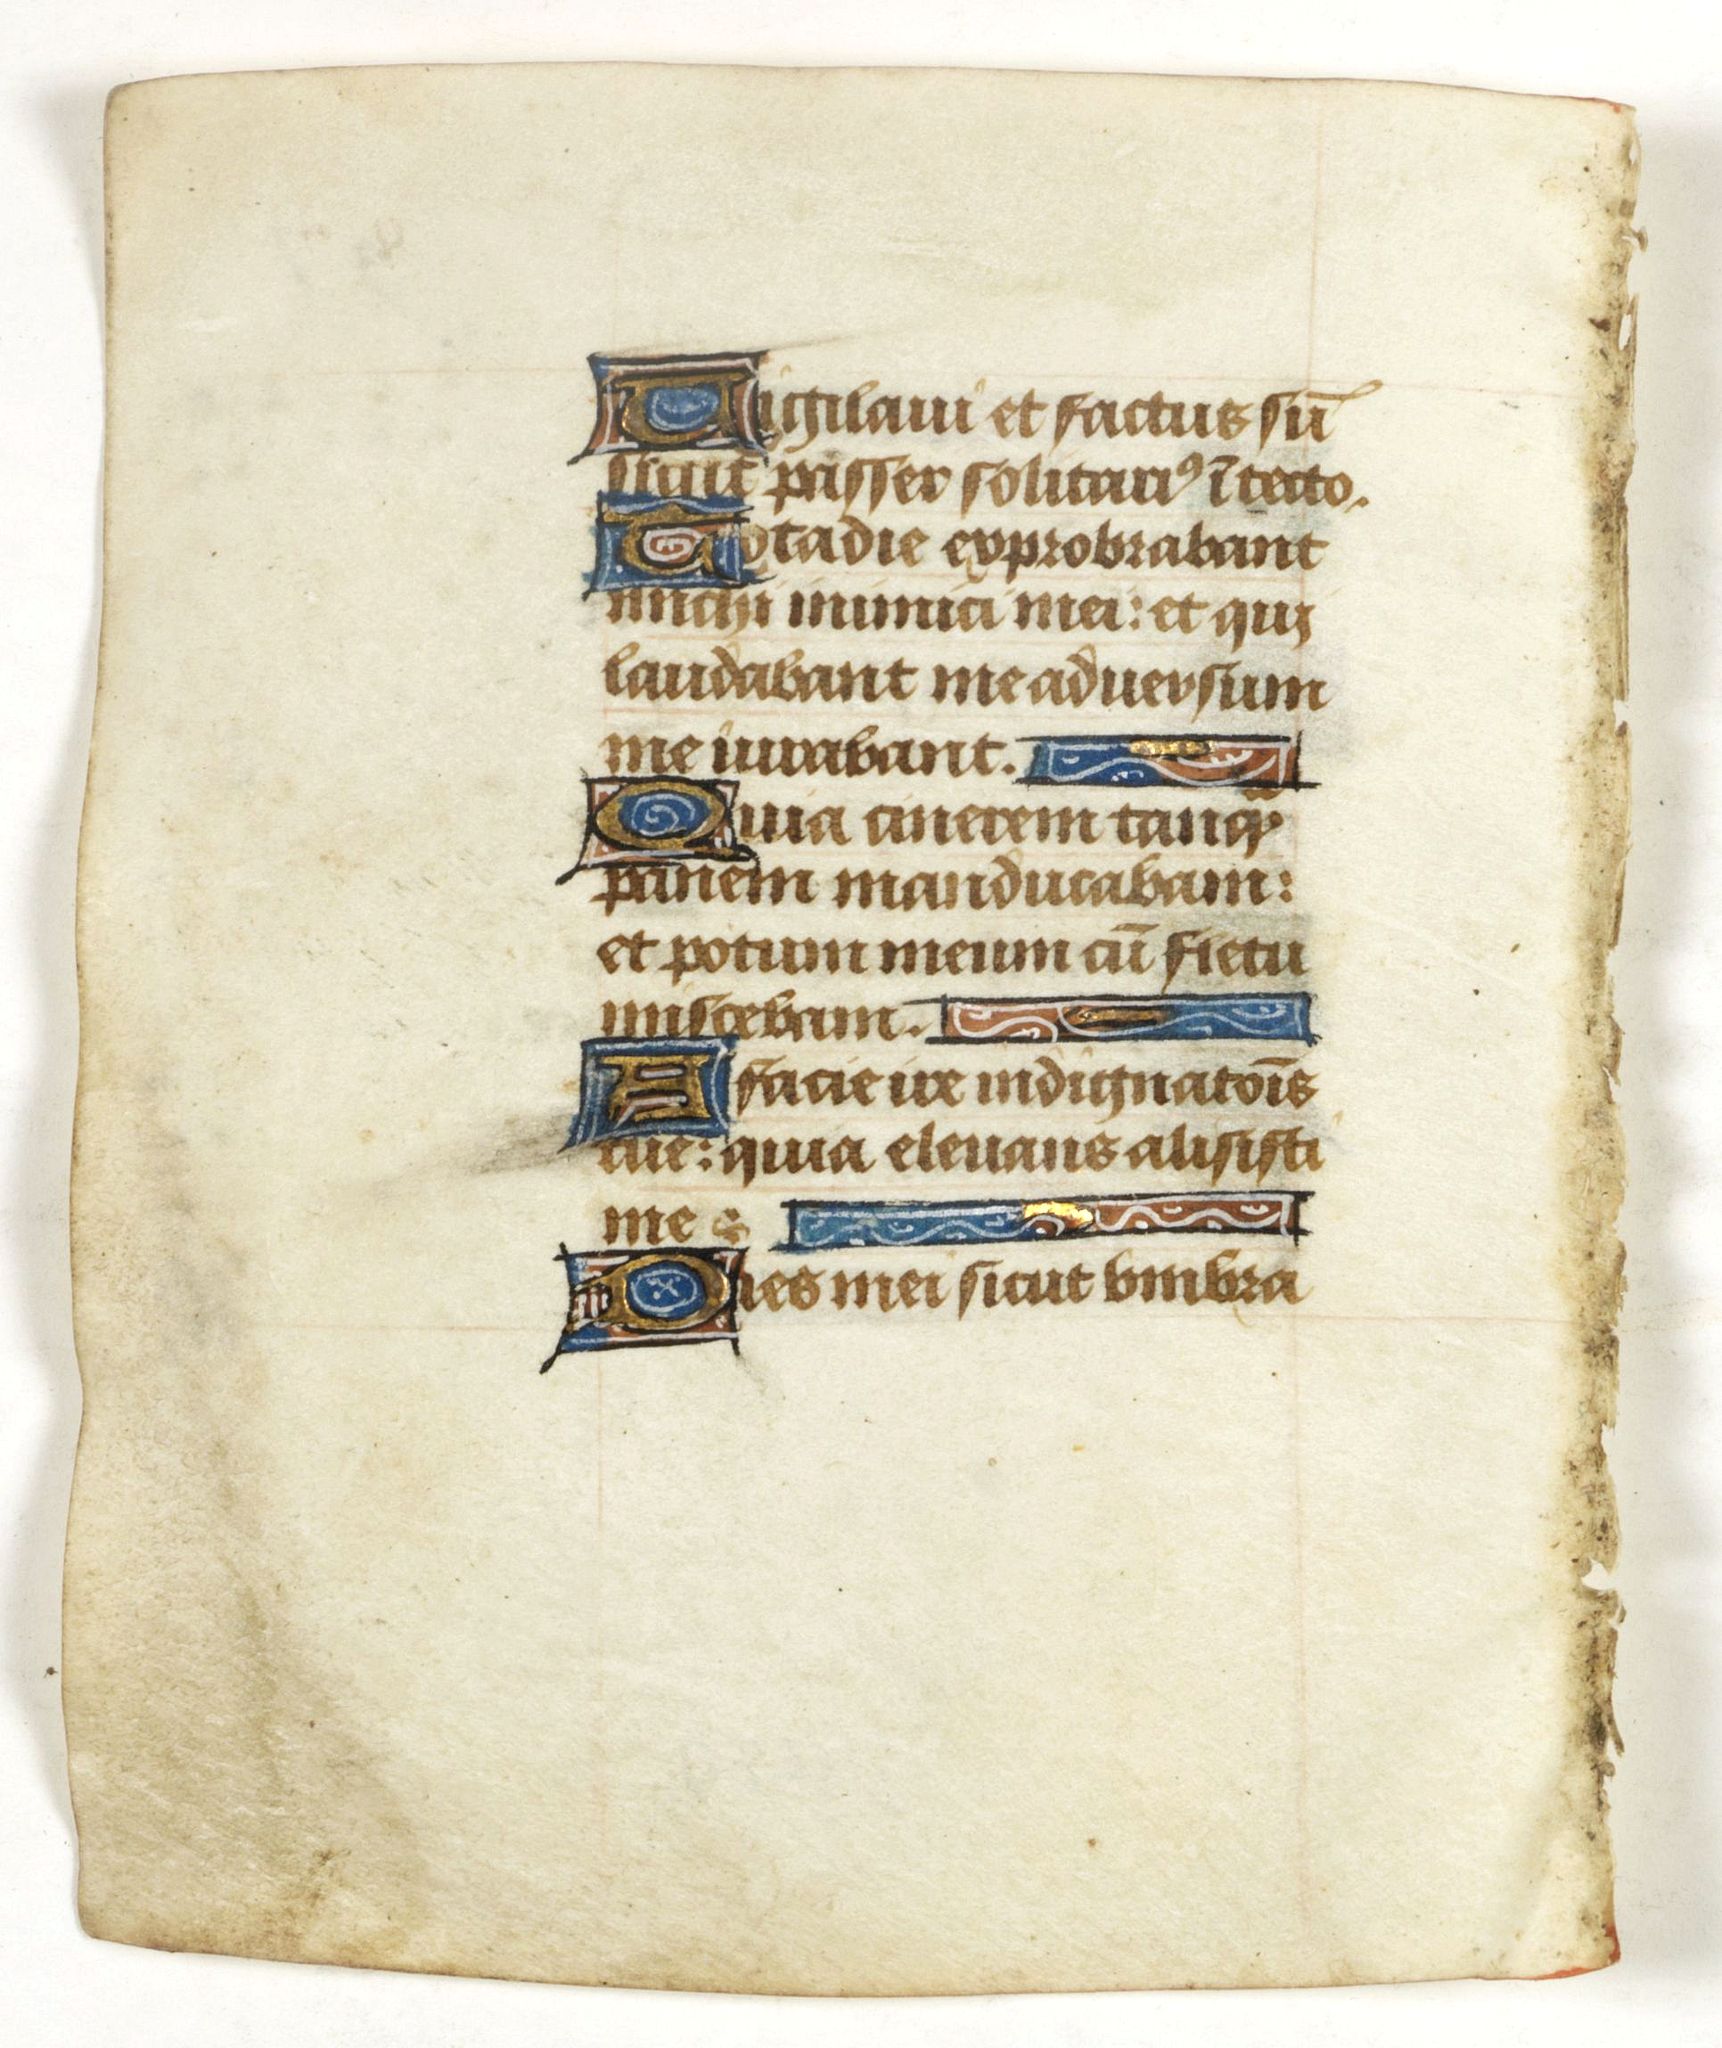 Uigilaui et factus sū
sicut passer solitariꝰ ī tecto.
Tota die exprobrabant
michi inimici mei: et qui
laudabant me aduersum
me iurabant.
Quia cinerem tanqͣ
panem manducabam:
et potum meum cū fletu
miscebam.
A facie ire indignatōis
tue: quia eleuans alisisti
me
Dies mei sicut vmbra